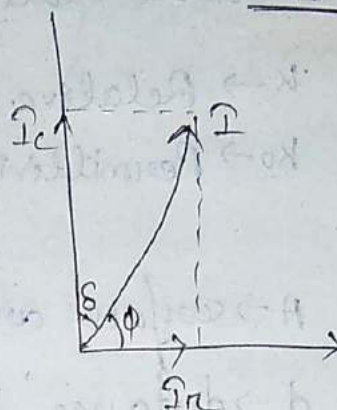 I_c I
δ φ
I_R